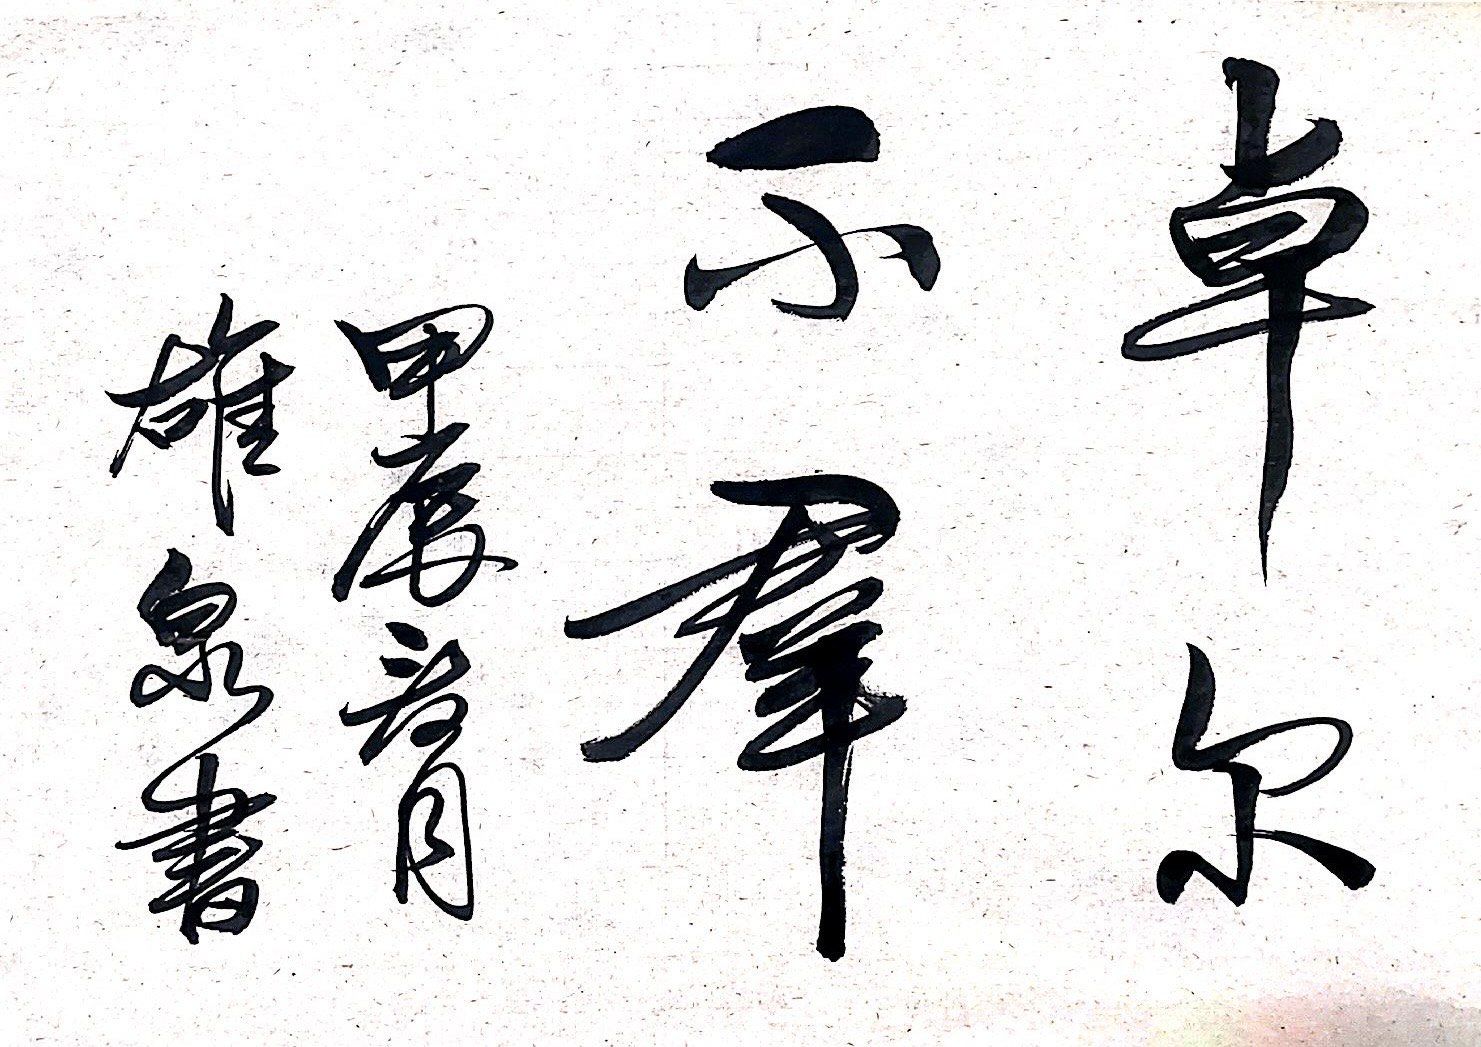 卓尔
不羣
甲辰夏月
雄泉書